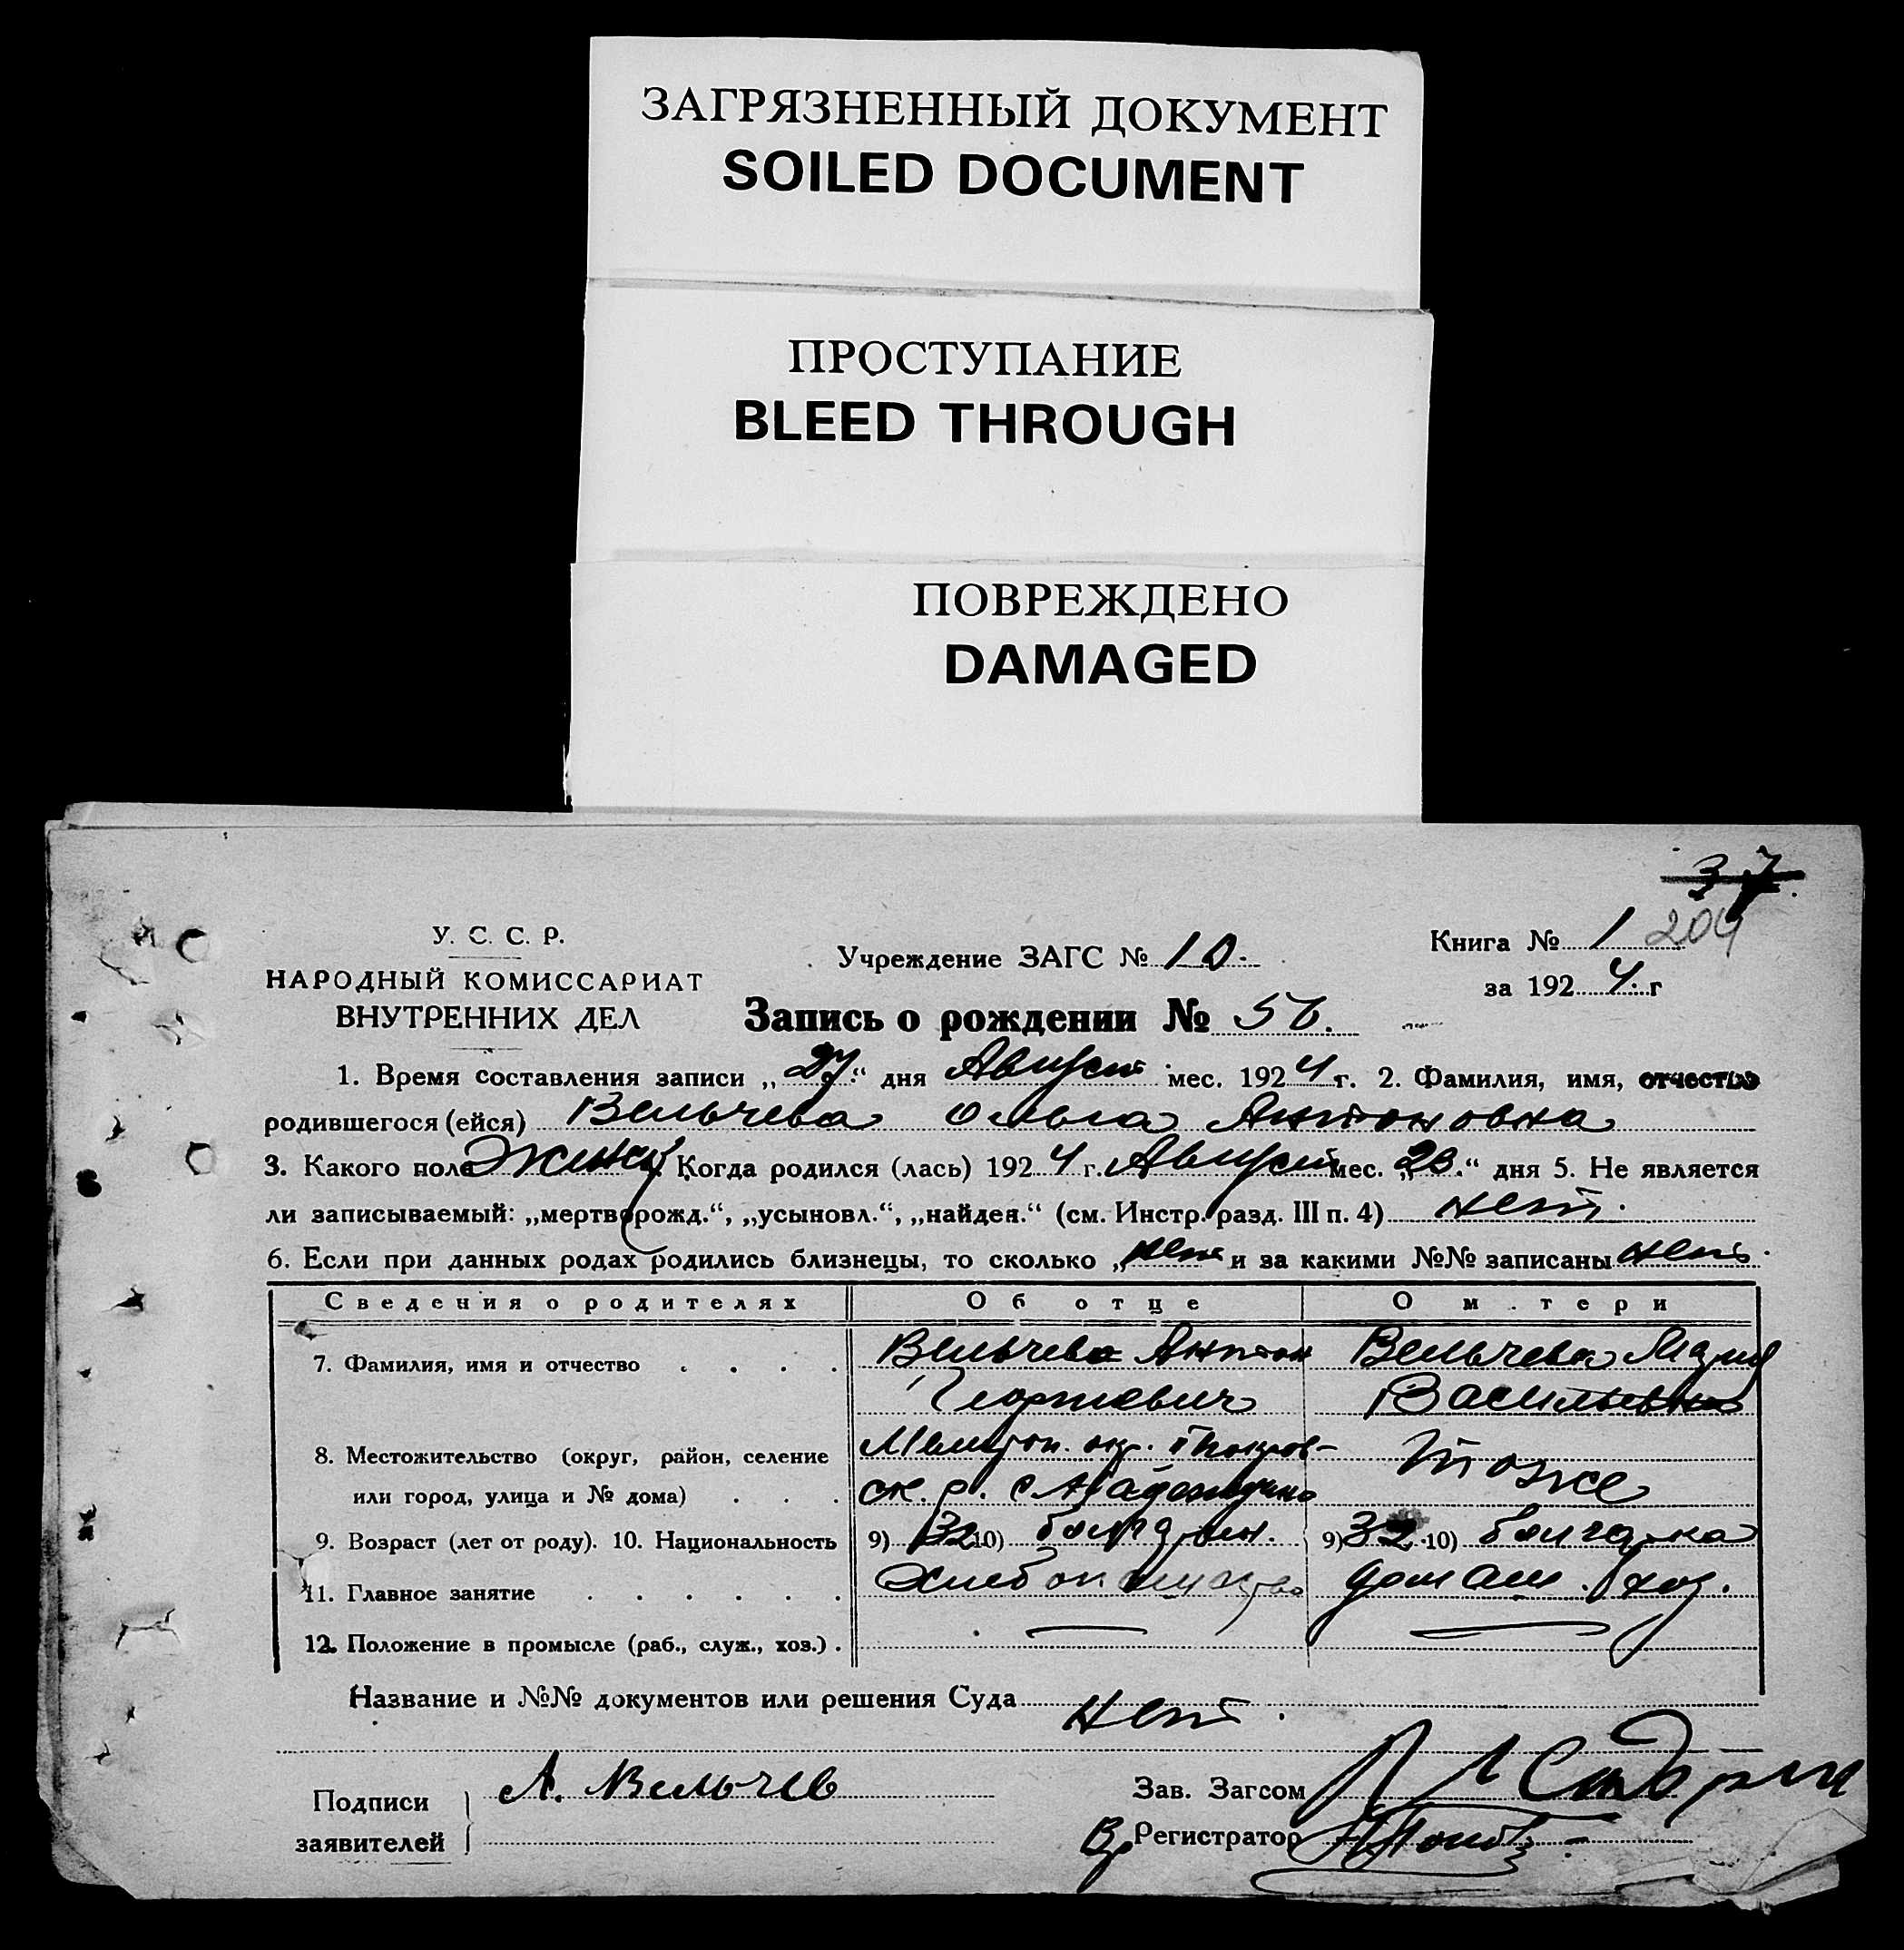 ЗАГРЯЗНЕННЫЙ ДОКУМЕНТ
SOILED DOCUMENT
ПРОСТУПАНИЕ
BLEED THROUGH
ПОВРЕЖДЕНО
DAMAGED
37.
У. С. С. Р.
НАРОДНЫЙ КОМИССАРИАТ
ВНУТРЕННИХ ДЕЛ
Учреждение ЗАГС № 10.
Книга № 1 204
за 1924. г
Запись о рождении № 56.
1. Время составления записи „27.“ дня Август мес. 1924 г. 2. Фамилия, имя, отчество
родившегося (ейся) Вельчева Ольга Антоновна
3. Какого пола Женск. Когда родился (лась) 1924 г. Август мес. „23.“ дня 5. Не является
ли записываемый: „мертворожд.“, „усыновл.“, „найден.“ (см. Инстр. разд. III п. 4) нет.
6. Если при данных родах родились близнецы, то сколько „нет и за какими №№ записаны нет.
Сведения о родителях Об отце О м.тери
7. Фамилия, имя и отчество . . . . Вельчев Антон Вельчева Мария
Георгиевич Васильевна
8. Местожительство (округ, район, селение Мелитоп. окр. Покров- тоже
или город, улица и № дома) . . . ск. р. с
9. Возраст (лет от роду). 10. Национальность 9) 32 10) болгарин. 9) 32. 10) болгарка
11. Главное занятие . . . . . . Хлебопашество домаш. хоз.
12. Положение в промысле (раб., служ., хоз.) . — —
Название и №№ документов или решения Суда нет.
Подписи А. Вельчев
заявителей
Зав. Загсом
Вр Регистратор